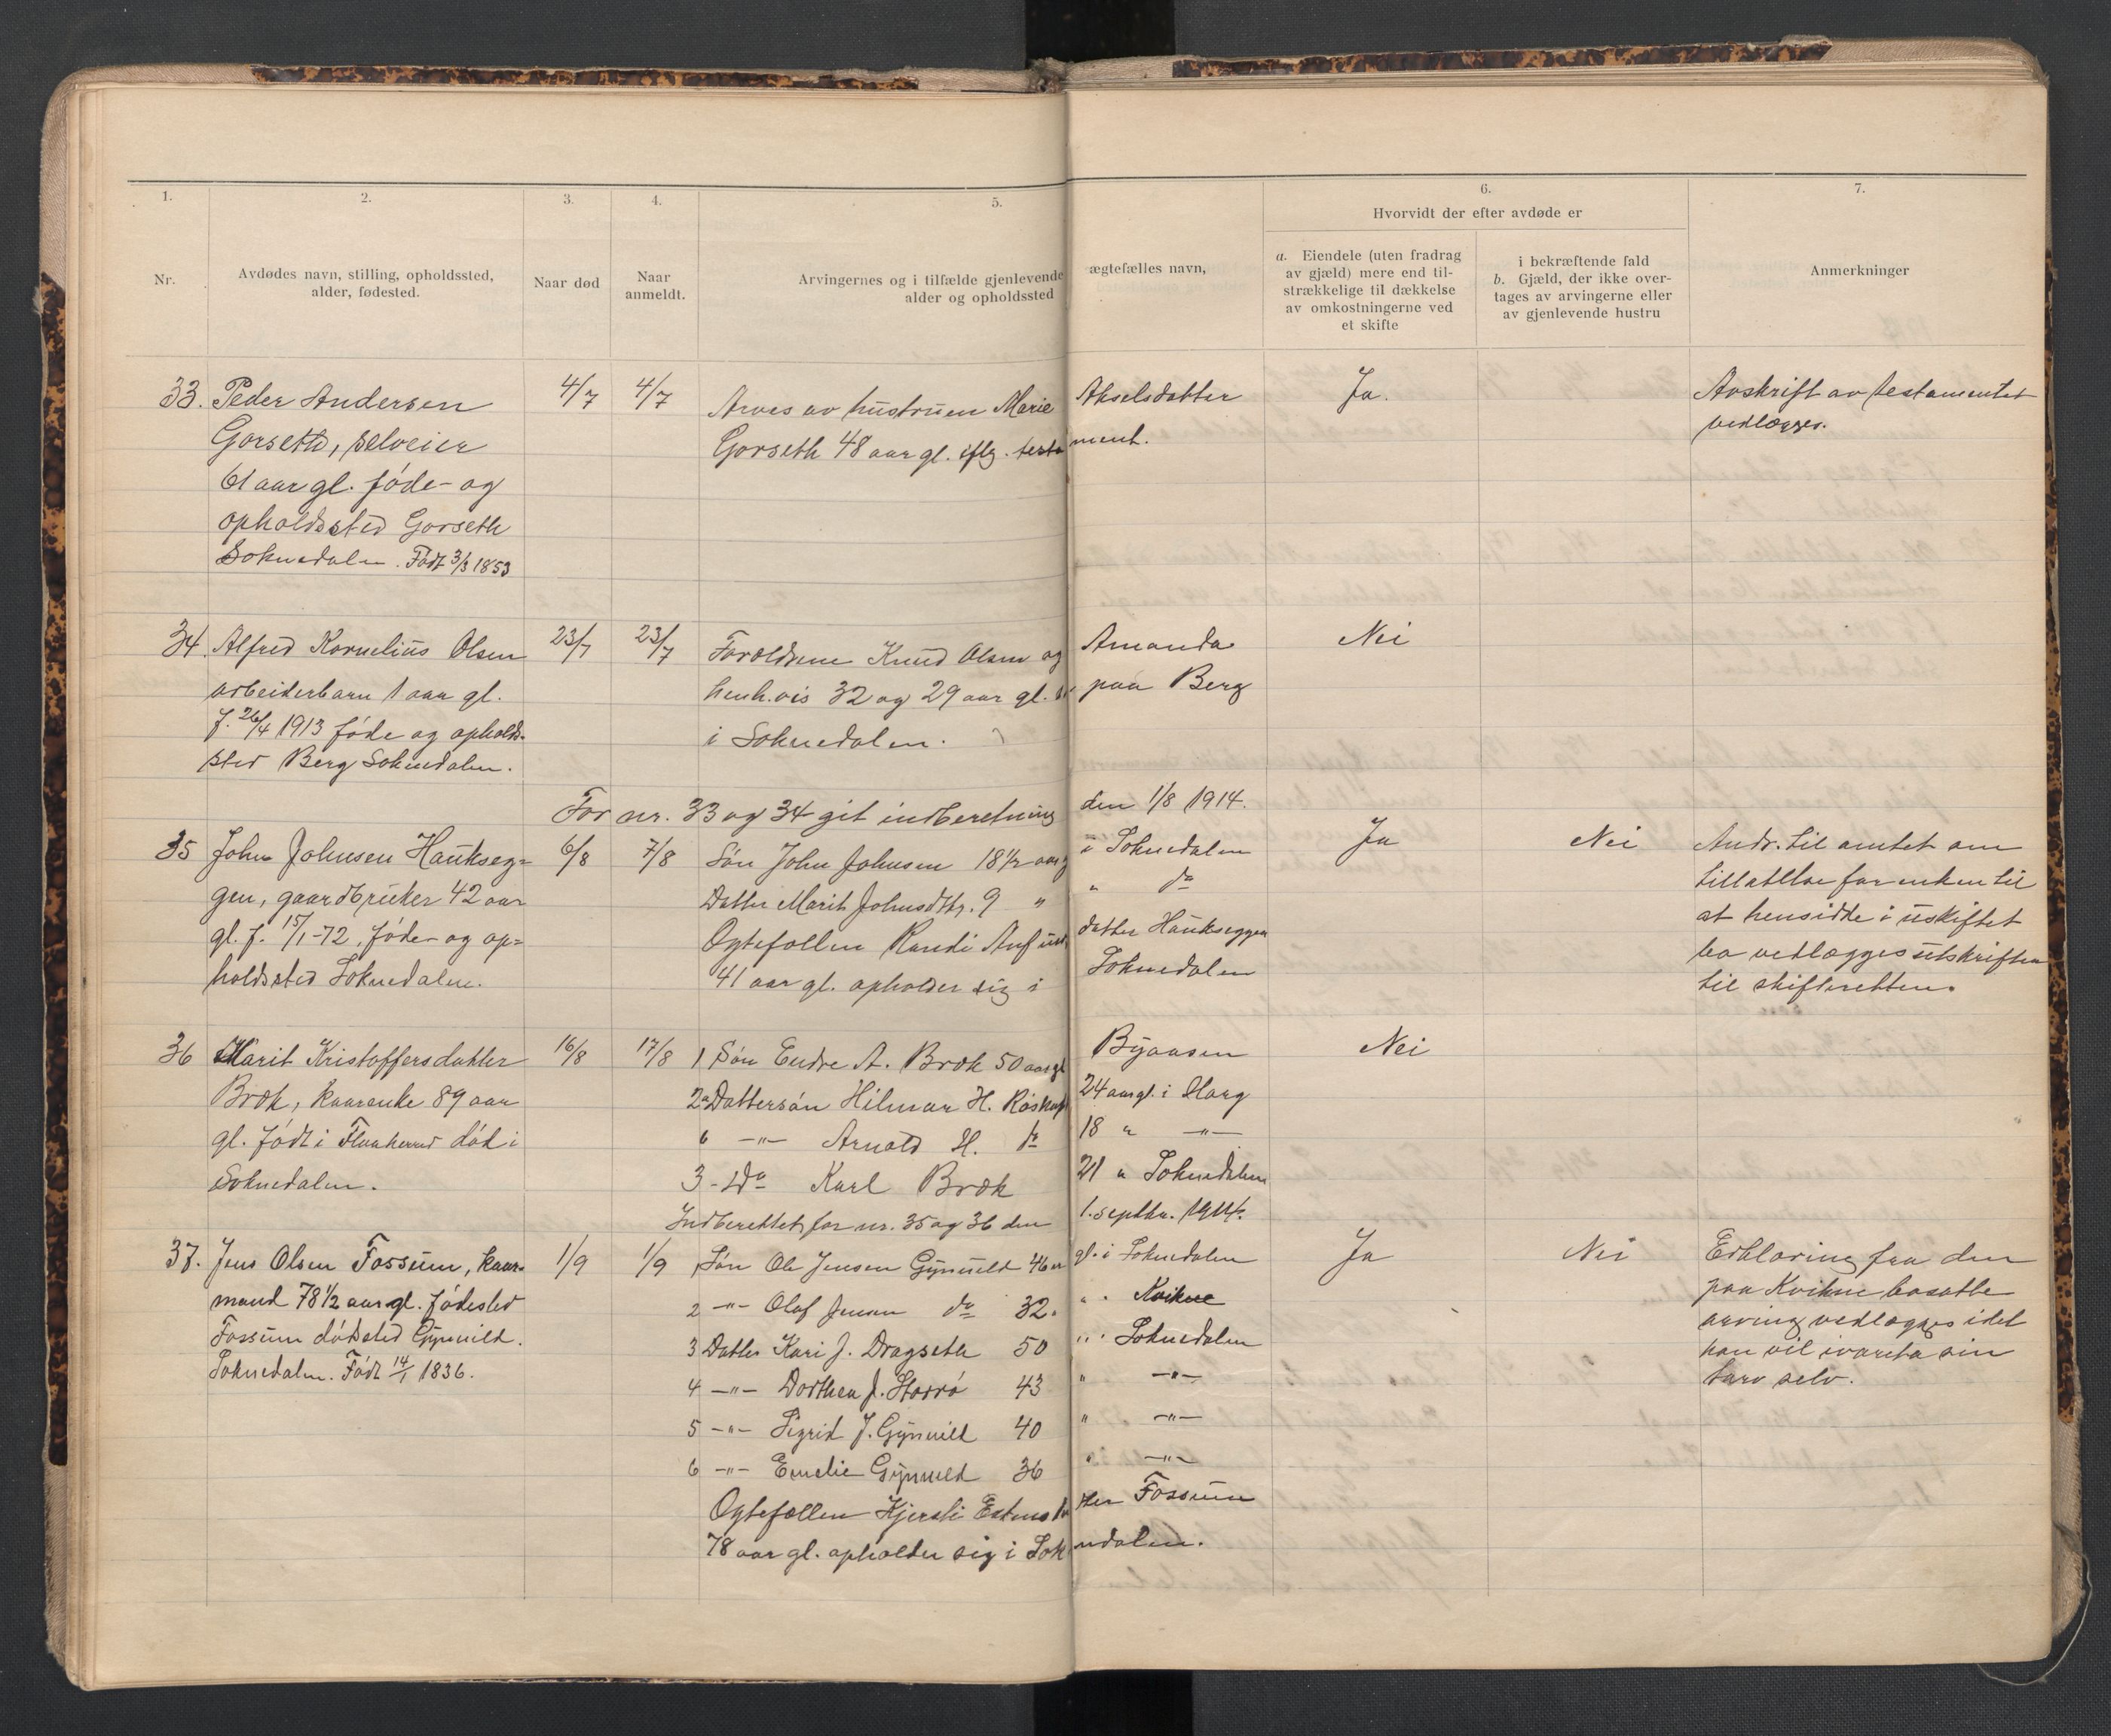 1. 2. 3. 4. 5. 6. 7.
Hvorvidt der efter avdøde er
Nr.
Avdødes navn, stilling, opholdssted,
alder, fødested.
Naar død
Naar
anmeldt.
Arvingernes og i tilfælde gjenlevende ægtefælles navn,
alder og opholdssted
a. Eiendele (uten fradrag
av gjæld) mere end til-
strækkelige til dækkelse
av omkostningerne ved
et skifte
i bekræftende fald
b. Gjæld, der ikke over-
tages av arvingerne eller
av gjenlevende hustru
Anmerkninger
33. Peder Andersen
Gorseth, selveier
61 aar gl. føde- og
opholdssted Gorseth
Soknedalen. Født 3/3 1853
4/7 4/7
Arves av hustruen Marie Akselsdatter
Gorseth 48 aar gl. iflg. testament.
Ja.
Avskrift av testamentet
vedlægges.
34. Alfred Kornelius Olsen
arbeiderbarn 1 aar gl.
f. 26/4 1913 føde og opholds-
sted Berg Soknedalen.
23/7 23/7
Forældrene Knud Olsen og Amanda
henh.vis 32 og 29 aar gl. paa Berg
i Soknedalen.
Nei
For nr. 33 og 34 git indberetning den 1/8 1914.
35 John Johnsen Haukseg-
gen, gaardbruker 42 aar
gl. f. 15/1-72, føde- og op-
holdssted Soknedalen.
6/8 7/8
Søn John Johnsen 18½ aar i Soknedalen
Datter Marit Johnsdtr. 9 " " do
Ægtefællen Randi Anfinnsdatter Haukseggen
41 aar gl. opholder sig i Soknedalen
Ja Nei
Andr. til amtet om
tillatelse for enken til
at hensidde i uskiftet
bo vedlægges utskriften
til skifteretten.
36 Marit Kristoffersdatter
Bræk, kaarenke 89 aar
gl. født i Flaaherred død i
Soknedalen.
16/8 17/8
1 Søn Endre A. Bræk 50 aar gl Byaasen
2a Dattersøn Hilmar H. Røskaft 24 aar gl. i Horg
b —"— Arnold H. do 18 " —"—
3 - Do Karl Bræk 21 " Soknedalen
Nei
Indberettet for nr. 35 og 36 den 1. septbr. 1914.
37. Jens Olsen Fossum, kaar-
mand 78½ aar gl. fødested
Fossum dødssted Gynnild.
Soknedalen. Født 14/1 1836.
1/9 1/9
1 Søn Ole Jensen Gynnild 46 aar gl. i Soknedalen
2 —"— Olof Jensen do 32 " " Kvikne
3 Datter Kari J. Dragseth 50 " " Soknedalen
4 —"— Dorthea J. Storrø 43 " —"—
5 —"— Sigrid J. Gynnild 40 " —"—
6 —"— Emelie Gynnild 36 " —"—
Ægtefællen Kjersti Estensdatter Fossum
78 aar gl. opholder sig i Soknedalen.
Ja Nei
Erklæring fra den
paa Kvikne bosatte
arving vedlægges idet
han vil ivareta sin
tarv selv.